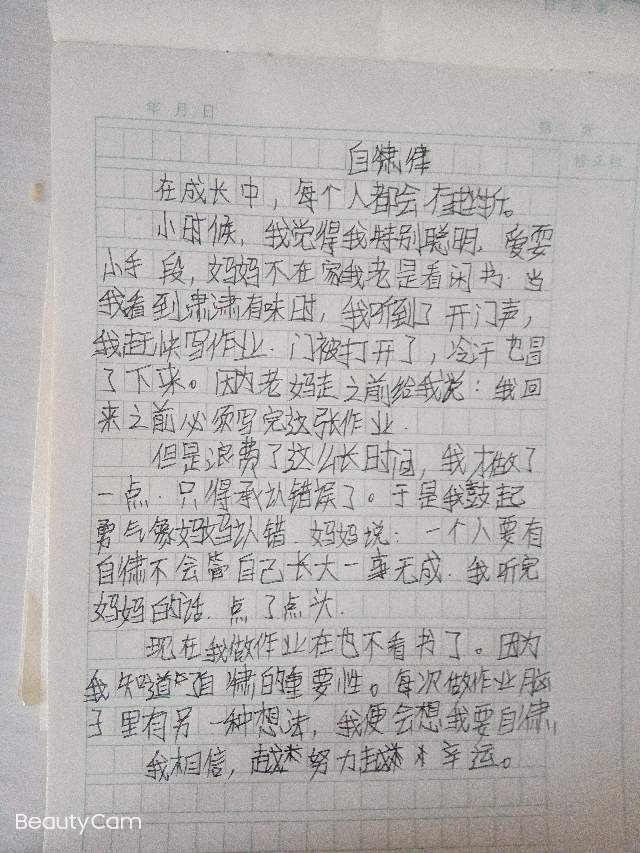 年 月 日
第 页
自律
在成长中，每个人都会有挫折。
小时候，我觉得我特别聪明，爱耍
小手段，妈妈不在家我老是看闲书．当
我看到肃潇有味时，我听到了开门声，
我赶快写作业．门被打开了，冷汗也冒
了下来。因为老妈走之前给我说：我回
来之前必须写完这张作业．
但是浪费了这么长时间，我才做了
一点．只得承认错误了。于是我鼓起
勇气像妈妈认错．妈妈说：一个人要有
自律不会管自己长大一事无成．我听完
妈妈的话．点了点头．
现在我做作业在也不看书了。因为
我知道了自律的重要性。每次做作业脑
子里有另一种想法，我便会想我要自律，
我相信，越努力越幸运。
BeautyCam